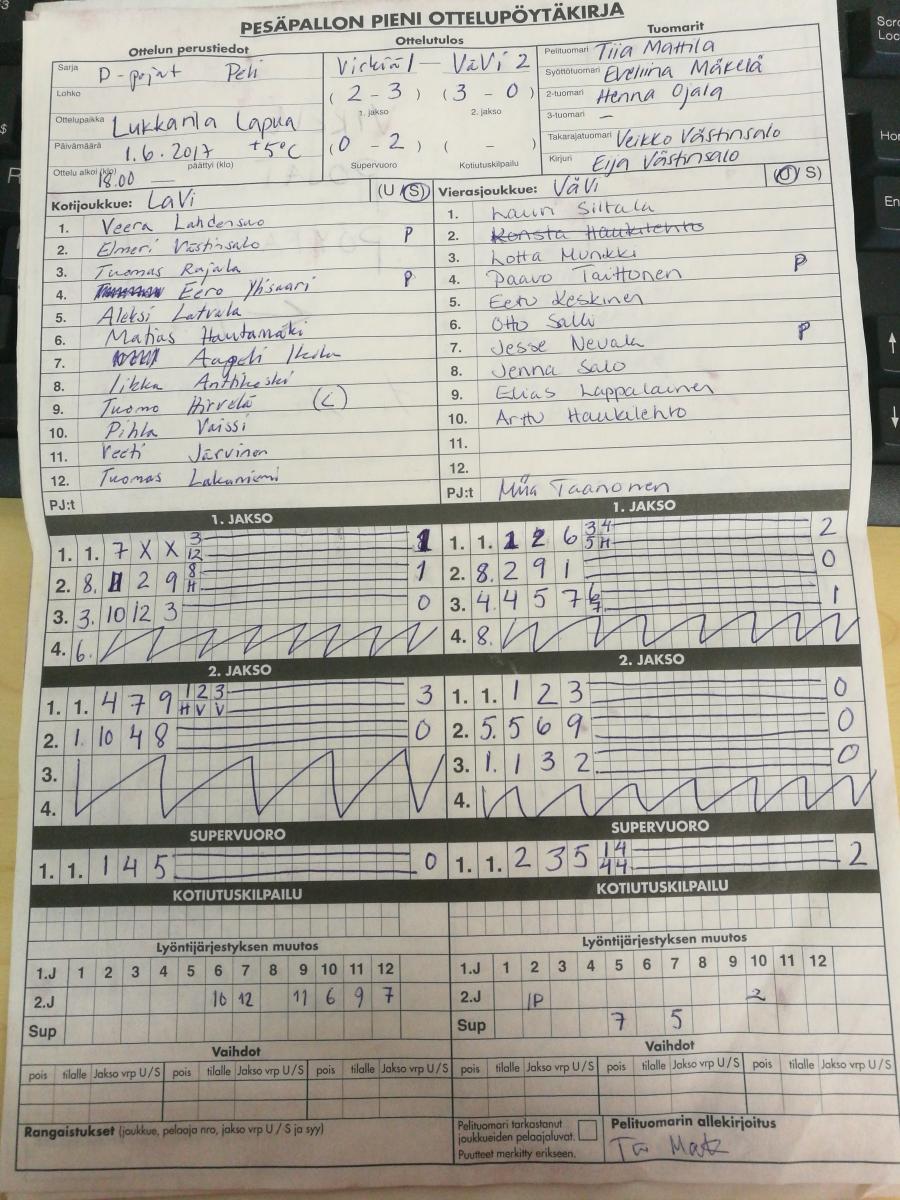 PESÄPALLON PIENI OTTELUPÖYTÄKIRJA
Ottelun perustiedot
Ottelutulos
Tuomarit
Sarja D-pojat Peli
Lohko
Ottelupaikka Lukkarila Lapua
Päivämäärä 1.6.2017 +5°C
Ottelu alkoi (klo) 18.00 päättyi (klo) —
Virkiä 1 — VäVi 2
( 2 - 3 ) ( 3 - 0 )
1. jakso 2. jakso
( 0 - 2 ) ( - )
Supervuoro Kotiutuskilpailu
Pelituomari Tiia Mattila
Syöttötuomari Eveliina Mäkelä
2-tuomari Henna Ojala
3-tuomari —
Takarajatuomari Veikko Västinsalo
Kirjuri Eija Västinsalo
Kotijoukkue: LaVi (U S)
1. Veera Lahdensuo
2. Elmeri Västinsalo P
3. Tuomas Rajala
4. Eero Ylisaari P
5. Aleksi Latvala
6. Matias Hautamäki
7. Aapeli
8. Iikka
9. Tuomo Hirvelä (L)
10. Pihla Vaissi
11. Veeti Järvinen
12. Tuomas Lakaniemi
PJ:t
Vierasjoukkue: VäVi (U/S)
1. Lauri Siltala
2. Konsta Haukilehto
3. Lotta Munkki
4. Paavo Taittonen P
5. Eetu Keskinen
6. Otto Salli
7. Jesse Nevala P
8. Jenna Salo
9. Elias Lappalainen
10. Arttu Haukilehto
11.
12.
PJ:t Miia Taanonen
1. JAKSO
1. 1. 7 X X 3 12 1
2. 8. 1 2 9 8 H 1
3. 3. 10 12 3 0
4. 6.
1. JAKSO
1. 1. 1 2 6 3 4 5 H 2
2. 8. 2 9 1 0
3. 4. 4 5 7 6 7 1
4. 8.
2. JAKSO
1. 1. 4 7 9 1 2 3 H V V 3
2. 1. 10 4 8 0
3.
4.
2. JAKSO
1. 1. 1 2 3 0
2. 5. 5 6 9 0
3. 1. 1 3 2 0
4.
SUPERVUORO
1. 1. 1 4 5 0
SUPERVUORO
1. 1. 2 3 5 14 44 2
KOTIUTUSKILPAILU
KOTIUTUSKILPAILU
Lyöntijärjestyksen muutos
1.J 1 2 3 4 5 6 7 8 9 10 11 12
2.J 10 12 11 6 9 7
Sup
Lyöntijärjestyksen muutos
1.J 1 2 3 4 5 6 7 8 9 10 11 12
2.J IP 2
Sup 7 5
Vaihdot
pois tilalle Jakso vrp U/S pois tilalle Jakso vrp U/S pois tilalle Jakso vrp U/S
Vaihdot
pois tilalle Jakso vrp U/S pois tilalle Jakso vrp U/S pois tilalle Jakso vrp U/S
Rangaistukset (joukkue, pelaaja nro, jakso vrp U / S ja syy)
Pelituomari tarkastanut
joukkueiden pelaajaluvat.
Puutteet merkitty erikseen.
Pelituomarin allekirjoitus